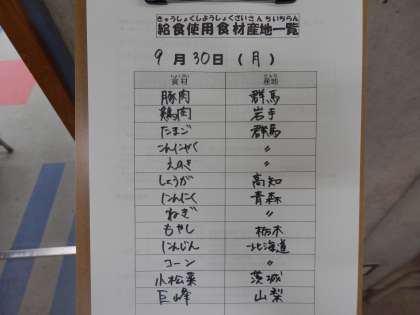 きゅうしょくしようしょくざいさんちいちらん
給食使用食材産地一覧
9月30日(月)
食材 産地
豚肉 群馬
鶏肉 岩手
たまご 群馬
こんにゃく 〃
えのき 〃
しょうが 高知
にんにく 青森
ねぎ 〃
もやし 栃木
にんじん 北海道
コーン 〃
小松菜 茨城
巨峰 山梨